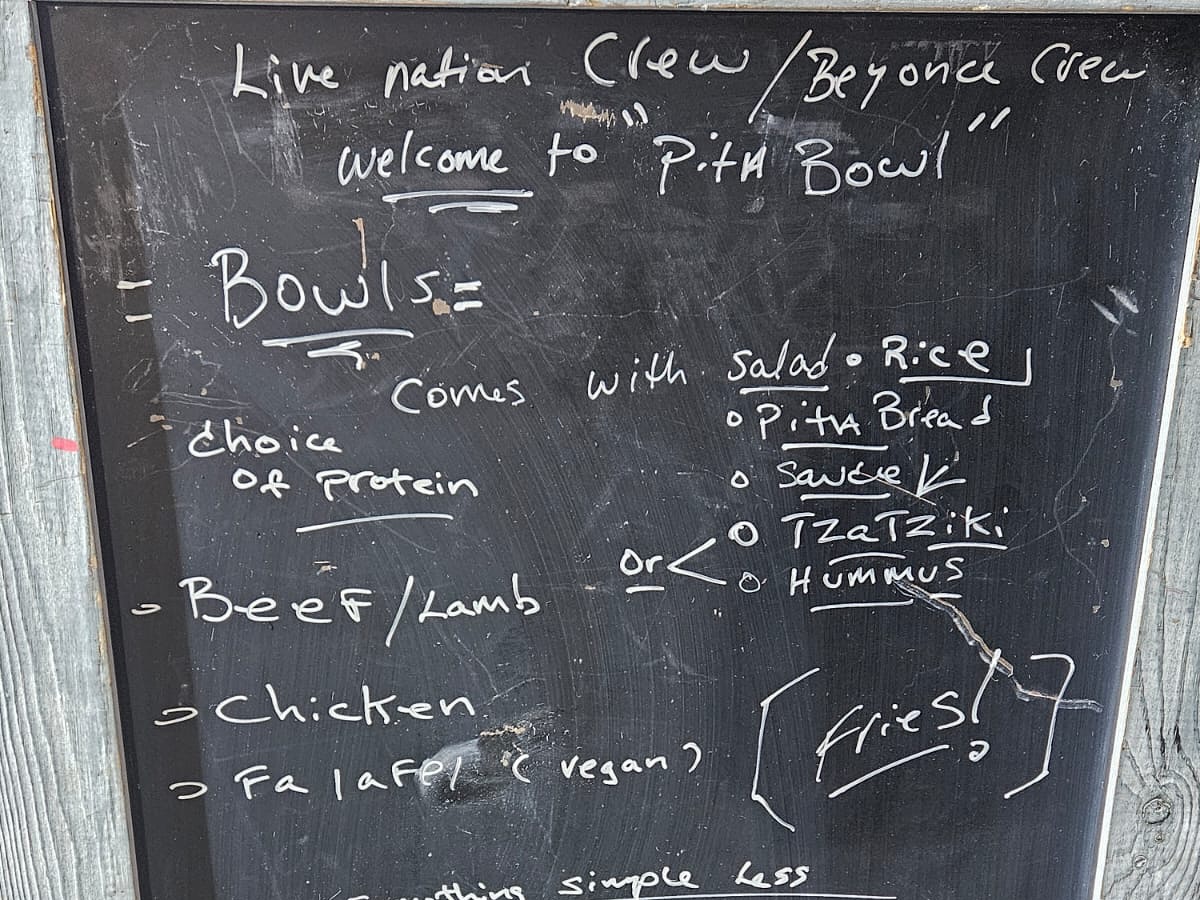 Live nation Crew / Beyonce Crew
welcome to "PitA Bowl"
= Bowls =
Comes with Salad • Rice
Choice
of protein
o PitA Bread
o Sauce
Or < o TZaTZiki
o HUmmus
- BeeF / Lamb
Chicken
FalaFel (vegan)
[ fries! ]
simple Less